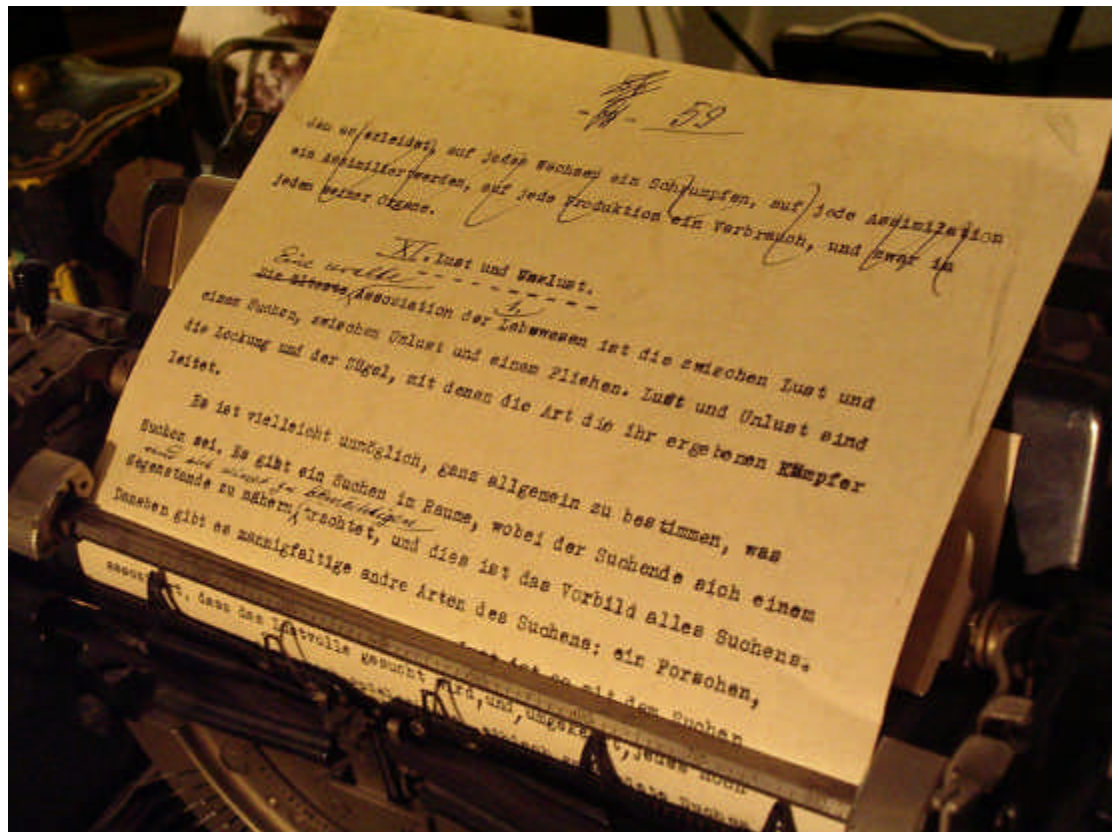 59
den er erleidet, auf jedes Wachsen ein Schrumpfen, auf jede Assimilation
ein Assimiliertwerden, auf jede Produktion ein Verbrauch, und zwar in
jedem seiner Organe.
XI. Lust und Unlust.
Eine uralte
Die älteste Association der Lebewesen ist die zwischen Lust und
einem Suchen, zwischen Unlust und einem Fliehen. Lust und Unlust sind
die Lockung und der Zügel, mit denen die Art die ihr ergebenen Kämpfer
leitet.
Es ist vielleicht unmöglich, ganz allgemein zu bestimmen, was
Suchen sei. Es gibt ein Suchen im Raume, wobei der Suchende sich einem
und sich seiner zu bemächtigen
Gegenstande zu nähern trachtet, und dies ist das Vorbild alles Suchens.
Daneben gibt es mannigfaltige andre Arten des Suchens: ein Forschen,
mit dem Suchen
dass das Lustvolle gesucht wird, und, umgekehrt, jedes noch